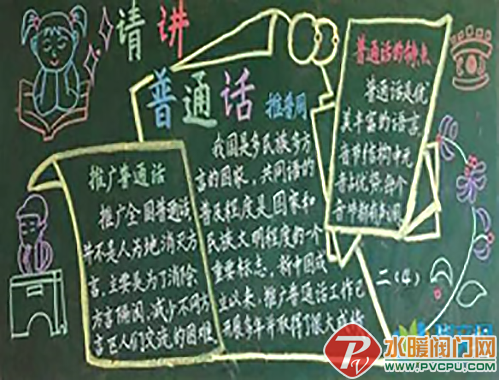 请讲
普通话
推普周
推广普通话
推广全国普通话,
并不是人为地消灭方
言,主要是为了消除
方言隔阂,减少不同方
言区人们交流的困难
我国是多民族多方
言的国家,共同语的
普及程度是国家和
民族文明程度的一个
重要标志,新中国成
立以来,推广普通话工作已
开展多年并取得了很大成绩
普通话的特点
普通话是优
美丰富的语言,
音节结构中元
音占优势,每个
音节都有声调
二(4)
水暖阀门网
WWW.PVCPU.COM